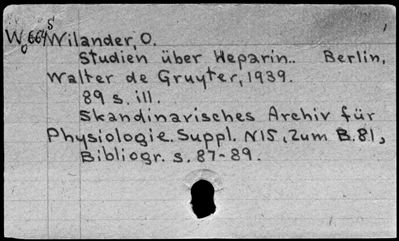 W 664 s Wilander, O.
Studien über Heparin.. Berlin,
Walter de Gruyter, 1939.
89 s. ill.
Skandinarisches Archiv für
Physiologie. Suppl. N15, Zum B.81,
Bibliogr. s. 87-89.